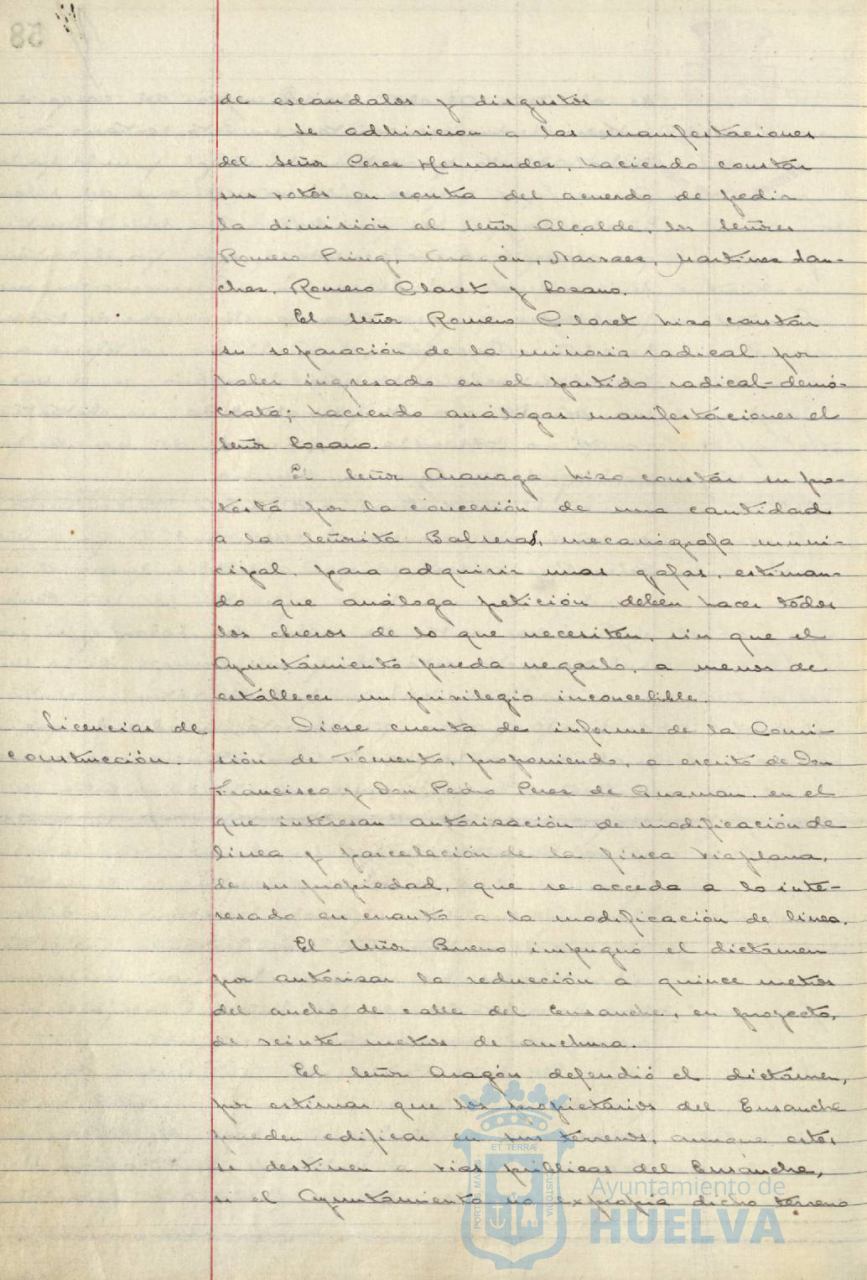 58
de escandalos y disgustos
Se adhirieron a las manifestaciones
del Señor Perez Hernandez, haciendo constar
sus votos en contra del acuerdo de pedir
la dimisión al Señor Alcalde, los Señores
Romero Aragón, Narvaez, Martinez San-
chez, Romero Claret y Lozano.
El Señor Romero Claret hizo constar
su separación de la minoria radical por
haber ingresado en el partido radical-demó-
crata; haciendo análogas manifestaciones el
Señor Lozano.
El Señor hizo constar su pro-
testa por la concesión de una cantidad
a la Señorita Balseras, mecanógrafa muni-
cipal, para adquirir unas gafas, estiman-
do que análoga petición deben hacer todos
los obreros de lo que necesiten, sin que el
Ayuntamiento pueda negarlo, a menos de
establecer un privilegio inconcebible.
Licencias de
construcción.
Diose cuenta de informe de la Comi-
sión de Fomento, proponiendo, a escrito de Don
Francisco y Don Pedro Perez de Guzman, en el
que interesan autorización de modificación de
línea y parcelación de la finca Viaplana,
de su propiedad, que se acceda a lo inte-
resado en cuanto a la modificación de línea.
El Señor Bueno impugnó el dictámen
por autorizar la reducción a quince metros
del ancho de calle del Ensanche, en proyecto,
de veinte metros de anchura.
El Señor Aragón defendió el dictámen,
por estimar que los propietarios del Ensanche
pueden edificar en sus terrenos, aunque estos
se destinen a vias públicas del Ensanche,
si el Ayuntamiento no expropia dicho terreno
Ayuntamiento de
HUELVA